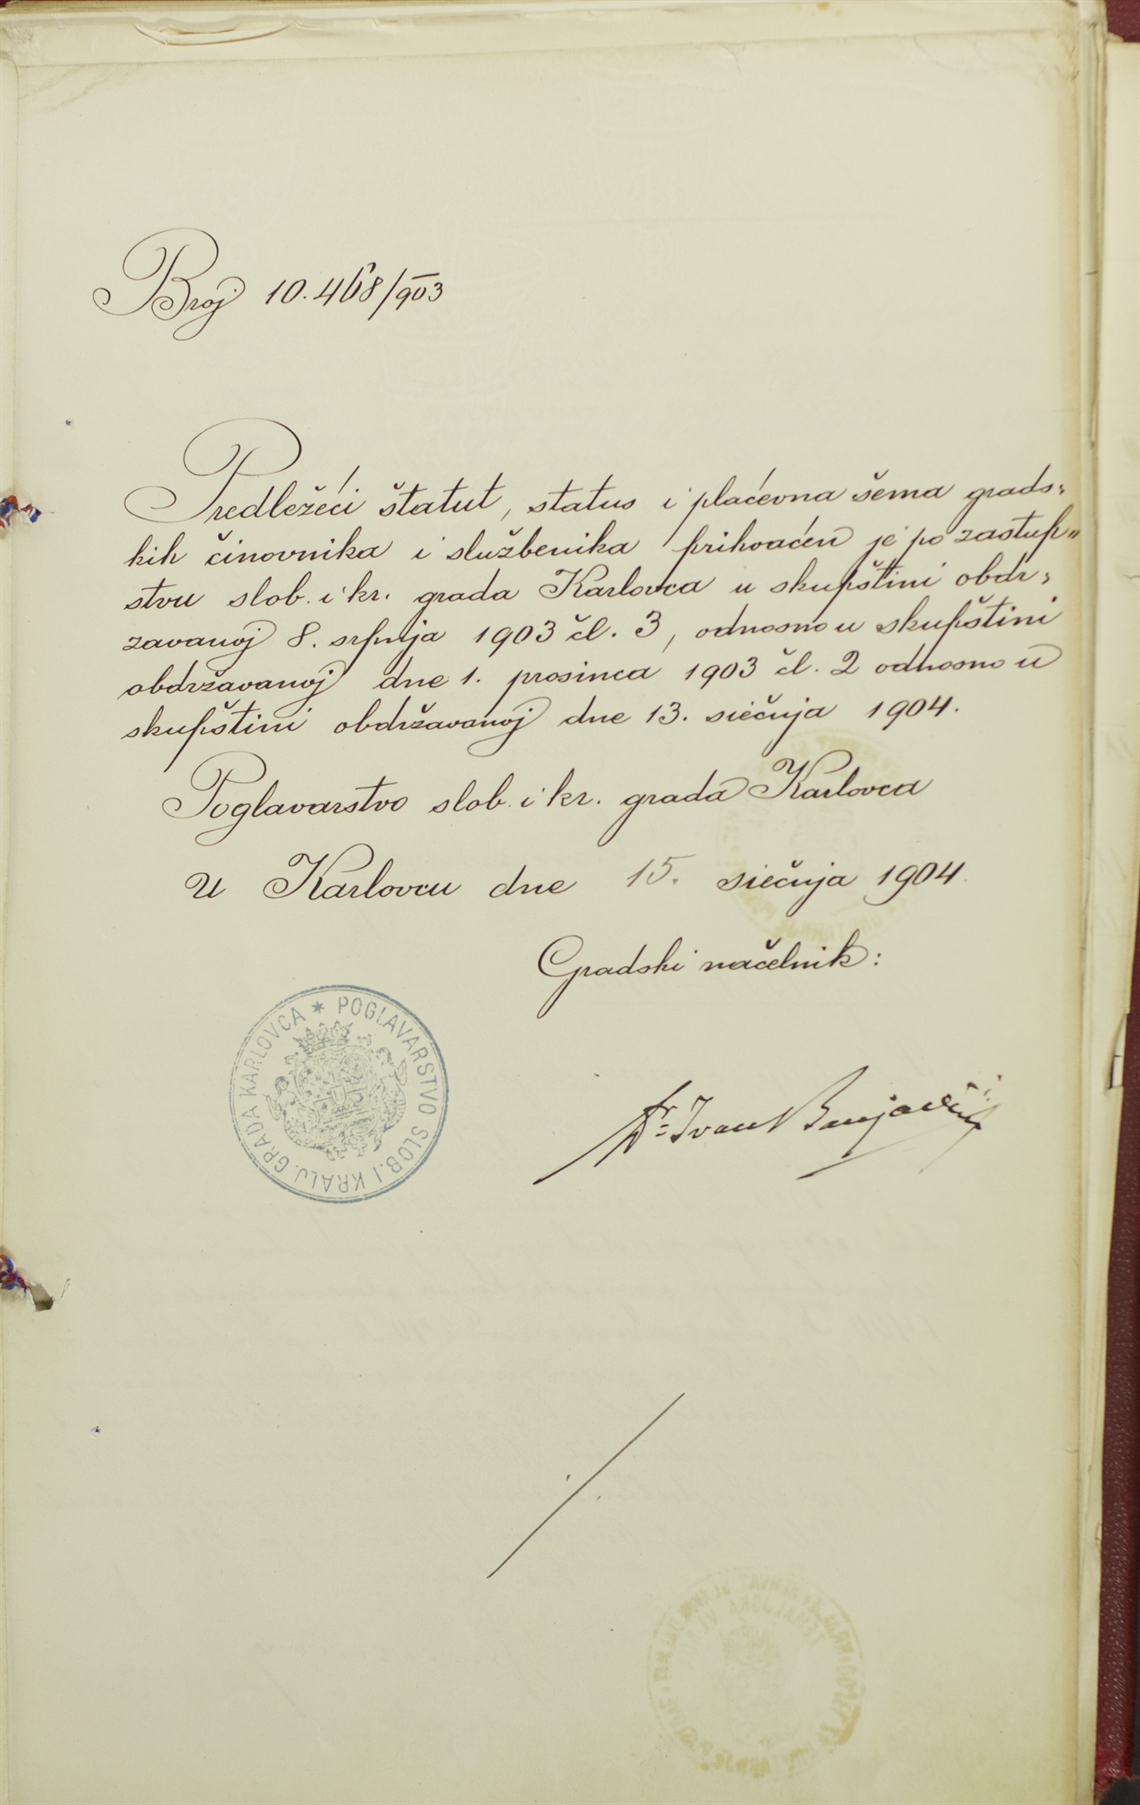 Broj 10.468/903
Predležeći štatut, status i plaćevna šema grads-
kih činovnika i službenika prihvaćen je po zastup-
stvu slob. i kr. grada Karlovca u skupštini obdr-
zavanoj 8. srpnja 1903 čl. 3, odnosno u skupštini
obdržavanoj dne 1. prosinca 1903 čl. 2 odnosno u
skupštini obdržavanoj dne 13. siečnja 1904.
Poglavarstvo slob. i kr. grada Karlovca
U Karlovcu dne 15. siečnja 1904.
Gradski načelnik:
POGLAVARSTVO SLOB. I KRALJ. GRADA KARLOVCA *
Dr. Ivan Banjavčić